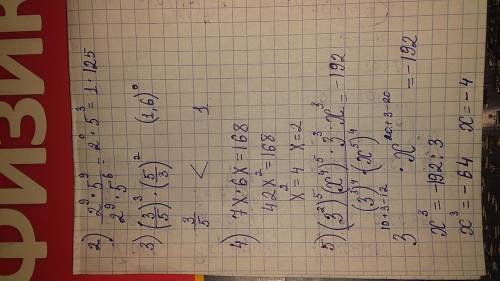 ФИЗИК
2) 2⁹·5⁹/2⁹·5⁶ = 2⁰·5³ = 1·125
3) (3/5)³·(5/3)² (1,6)⁰
3/5 < 1
4) 7x·6x=168
42x²=168
x²=4 x=2
5) (3²)⁵(x⁴)⁵·3³·x³/(3³)⁴(x⁵)⁴ = -192
3¹⁰⁺³⁻¹²·x²⁰⁺³⁻²⁰ = -192
x³=-192:3
x³=-64 x=-4